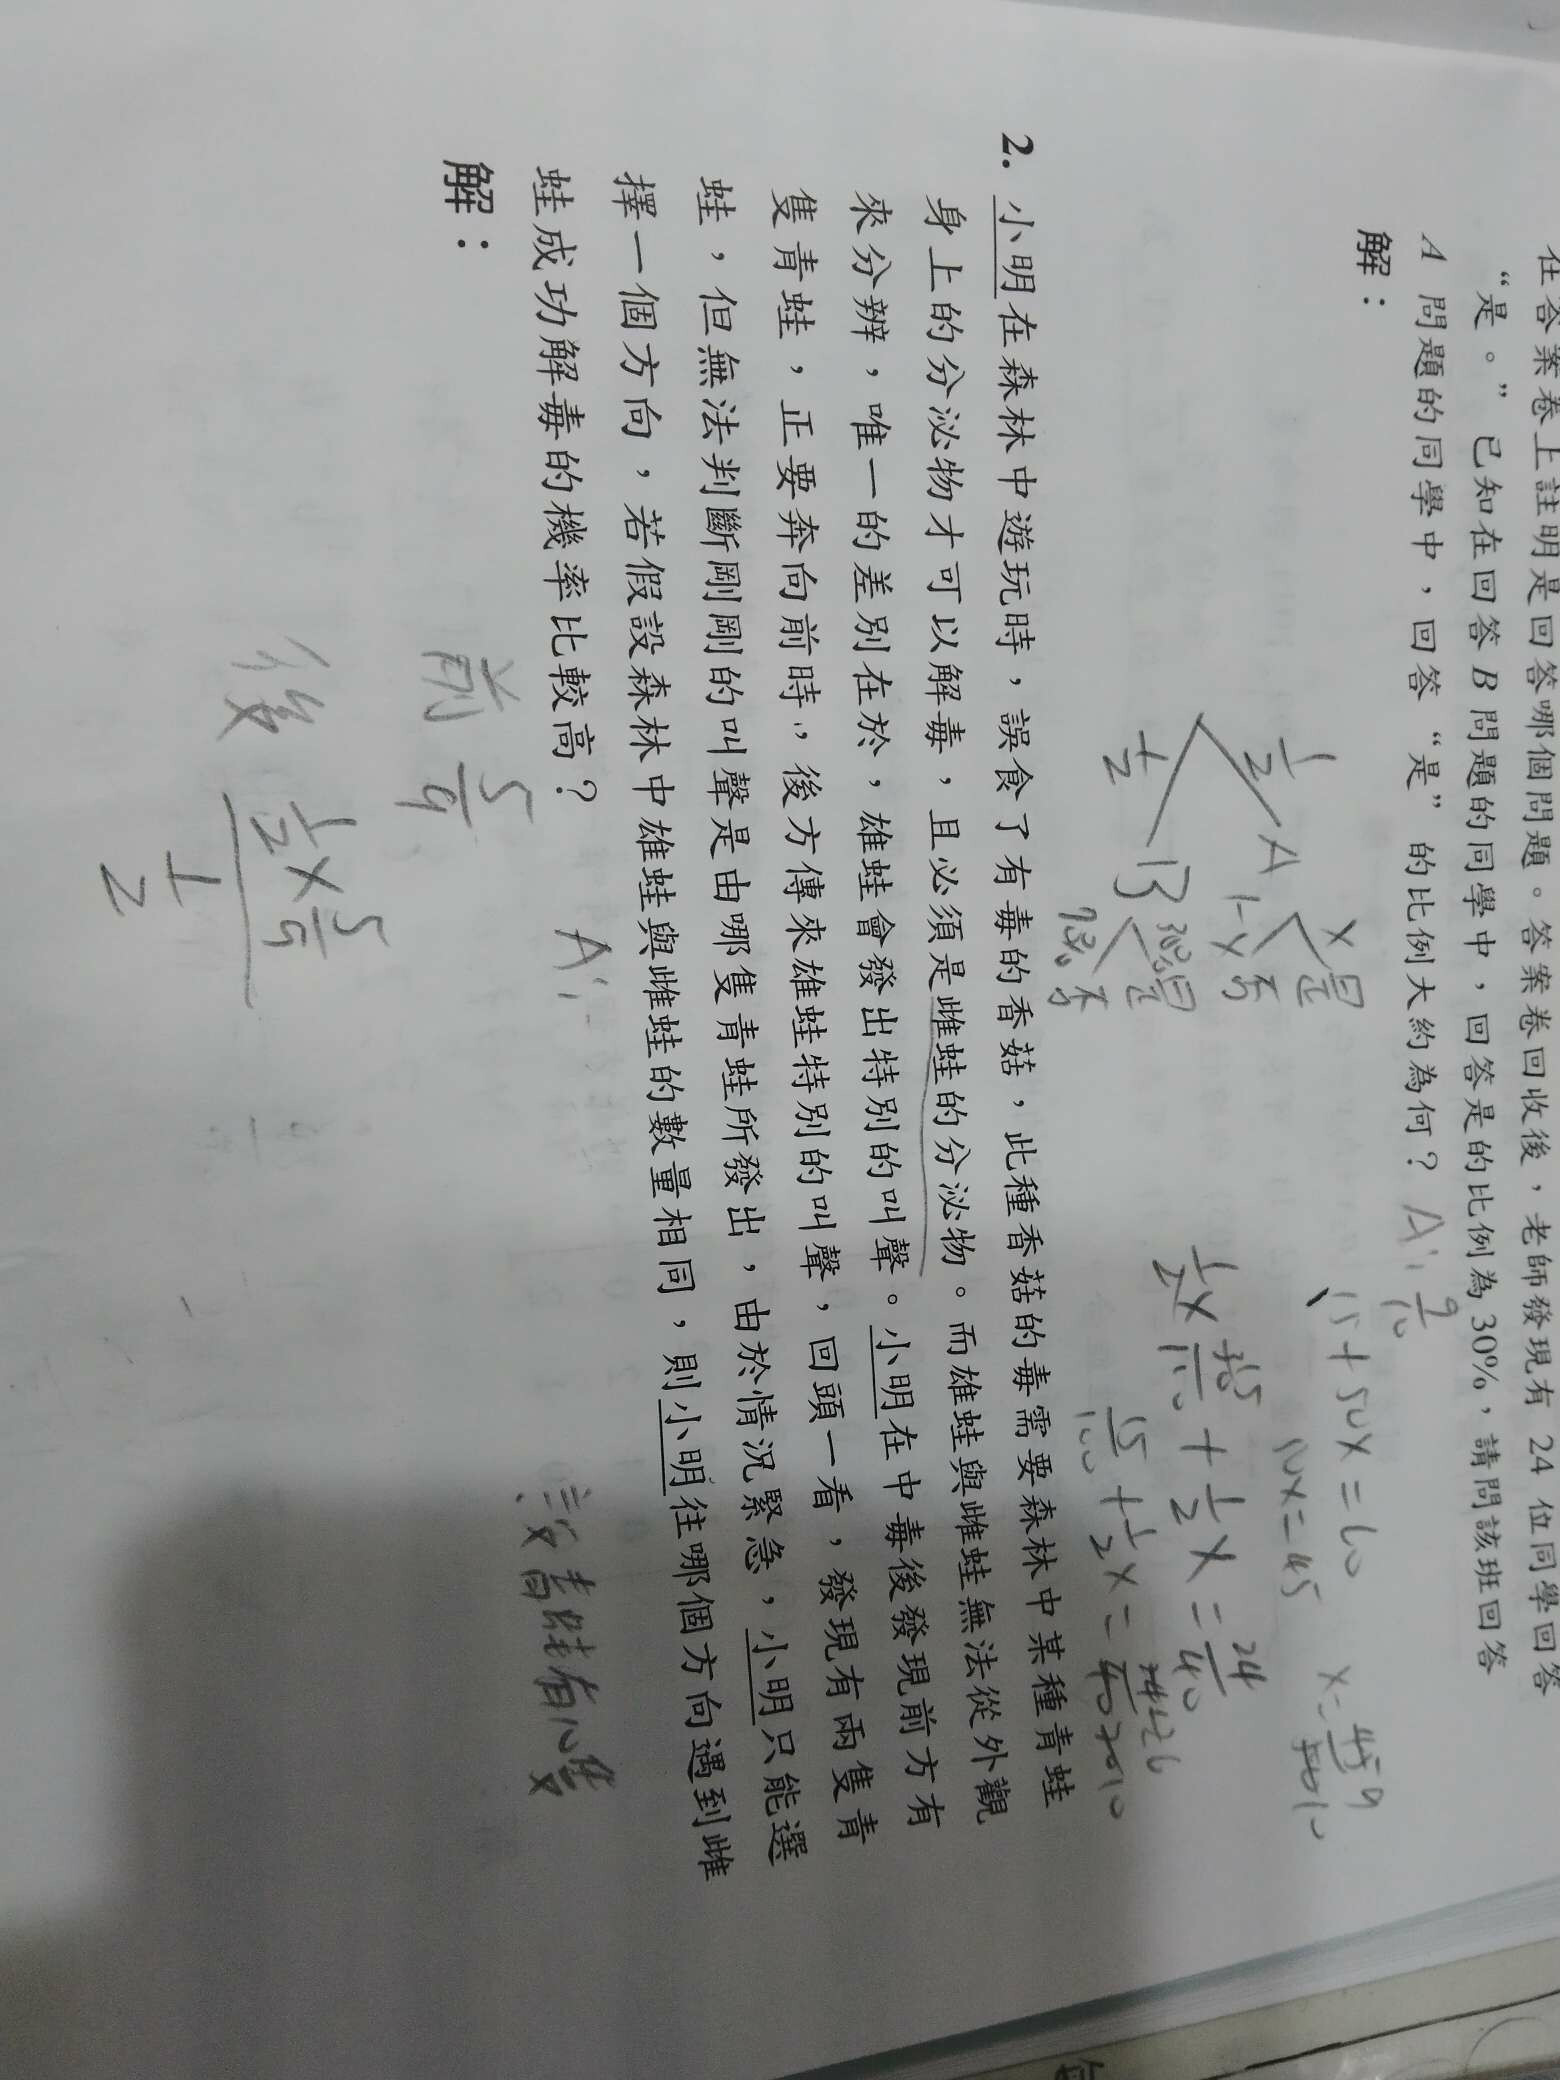 在答案卷上註明是回答哪個問題。答案卷回收後，老師發現有 24 位同學回答
“是。” 已知在回答 B 問題的同學中，回答是的比例為 30%，請問該班回答
A 問題的同學中，回答 “是” 的比例大約為何？ A: 9/10
解：
15+50x=60
50x=45
1/2 A x 是
1-x 否
1/2 B 30% 是
70% 否
2. 小明在森林中遊玩時，誤食了有毒的香菇，此種香菇的毒需要森林中某種青蛙
身上的分泌物才可以解毒，且必須是雌蛙的分泌物。而雄蛙與雌蛙無法從外觀
來分辨，唯一的差別在於，雄蛙會發出特別的叫聲。小明在中毒後發現前方有
隻青蛙，正要奔向前時，後方傳來雄蛙特別的叫聲，回頭一看，發現有兩隻青
蛙，但無法判斷剛剛的叫聲是由哪隻青蛙所發出，由於情況緊急，小明只能選
擇一個方向，若假設森林中雄蛙與雌蛙的數量相同，則小明往哪個方向遇到雌
蛙成功解毒的機率比較高？ A:
解：
前 5/9
後 1/2×5/9
1/2